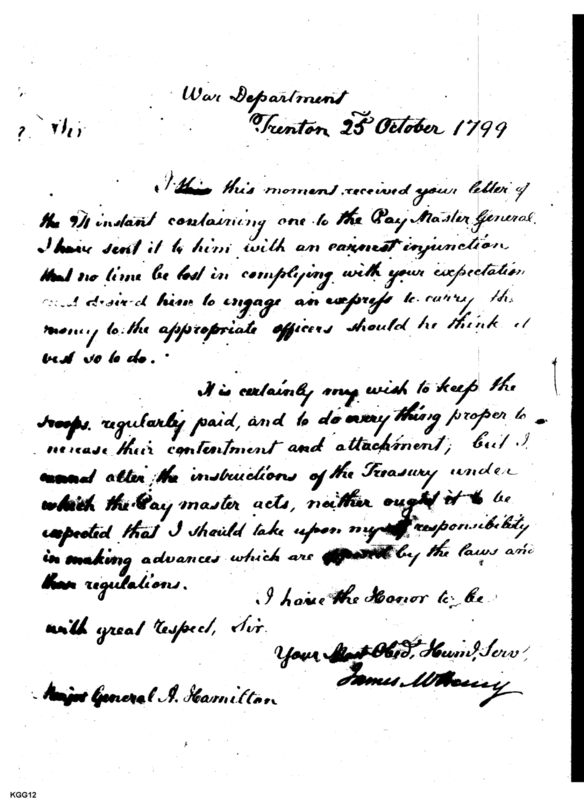 War Department
Trenton 25th October 1799
Sir
I this moment received your letter of
the instant containing one to the Pay Master General.
I have sent it to him with an earnest injunction
that no time be lost in complying with your expectation
and desired him to engage an express to carry the
money to the appropriate officers should he think it
best so to do.
It is certainly my wish to keep the
troops regularly paid, and to do every thing proper to
increase their contentment and attachment; but I
cannot alter the instructions of the Treasury under
which the Pay master acts, neither ought it to be
expected that I should take upon myself responsibility
in making advances which are by the laws and
those regulations.
I have the Honor to be
with great respect, Sir
Your Most Obed, Hum, Serv,
James McHenry
Major General A. Hamilton
KGG12